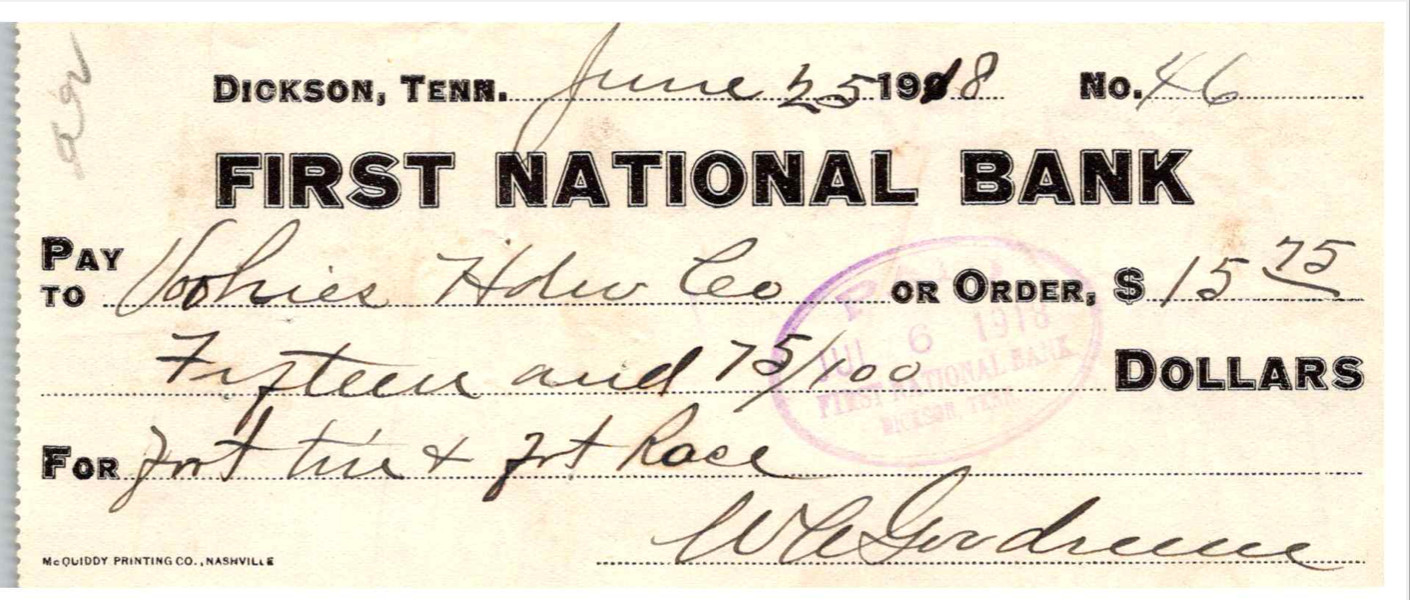 Dickson, Tenn. June 25 1918 No. 46
FIRST NATIONAL BANK
PAY TO Hdw Co OR ORDER, $ 15 75
Fifteen and 75/100 DOLLARS
FOR tire &
W
McQUIDDY PRINTING CO., NASHVILLE
PAID
JUL 6 1918
FIRST NATIONAL BANK
DICKSON, TENN.